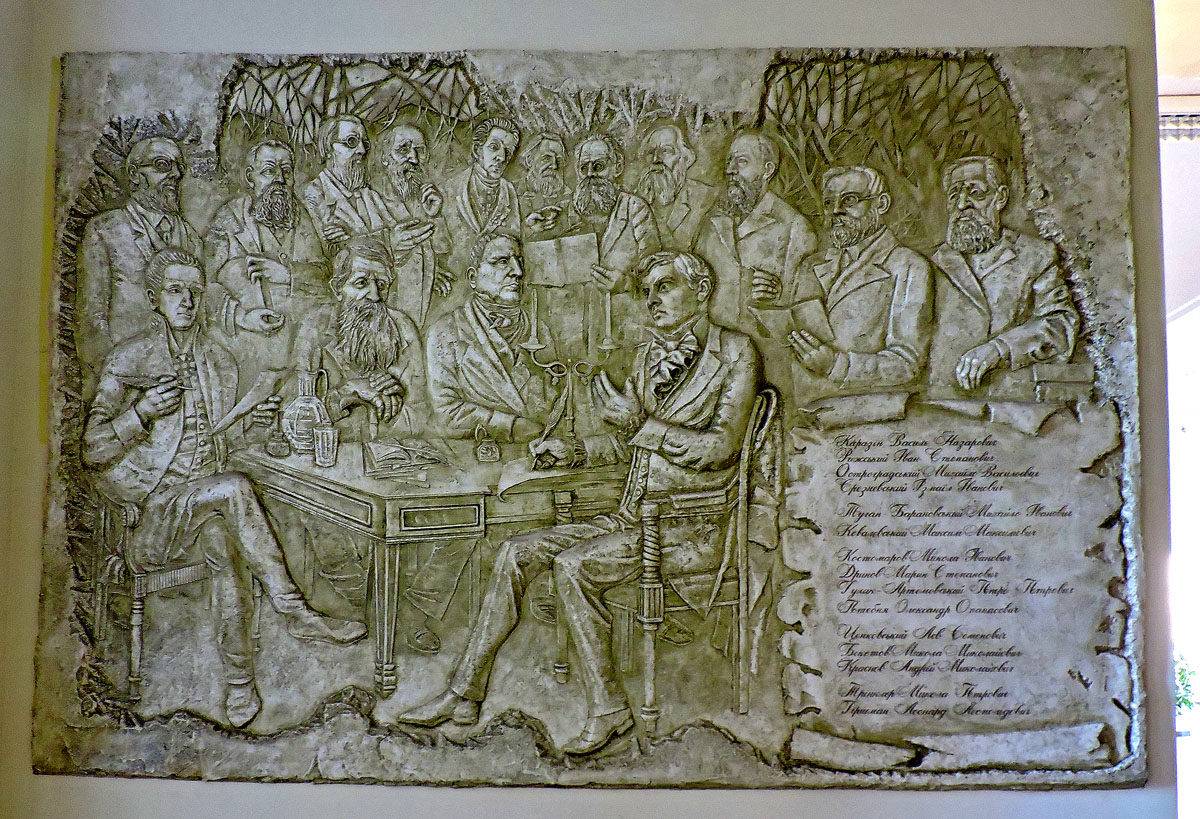 Каразін Василь Назарович
Рижський Іван Степанович
Остроградський Михайло Васильович
Срезневський Ізмаїл Іванович
Туган-Барановський Михайло Іванович
Ковалевський Максим Максимович
Костомаров Микола Іванович
Дринов Марин Степанович
Гулак-Артемовський Петро Петрович
Потебня Олександр Опанасович
Ценковський Лев Семенович
Бекетов Микола Миколайович
Краснов Андрій Миколайович
Трінклер Микола Петрович
Гіршман Леонард Леопольдович